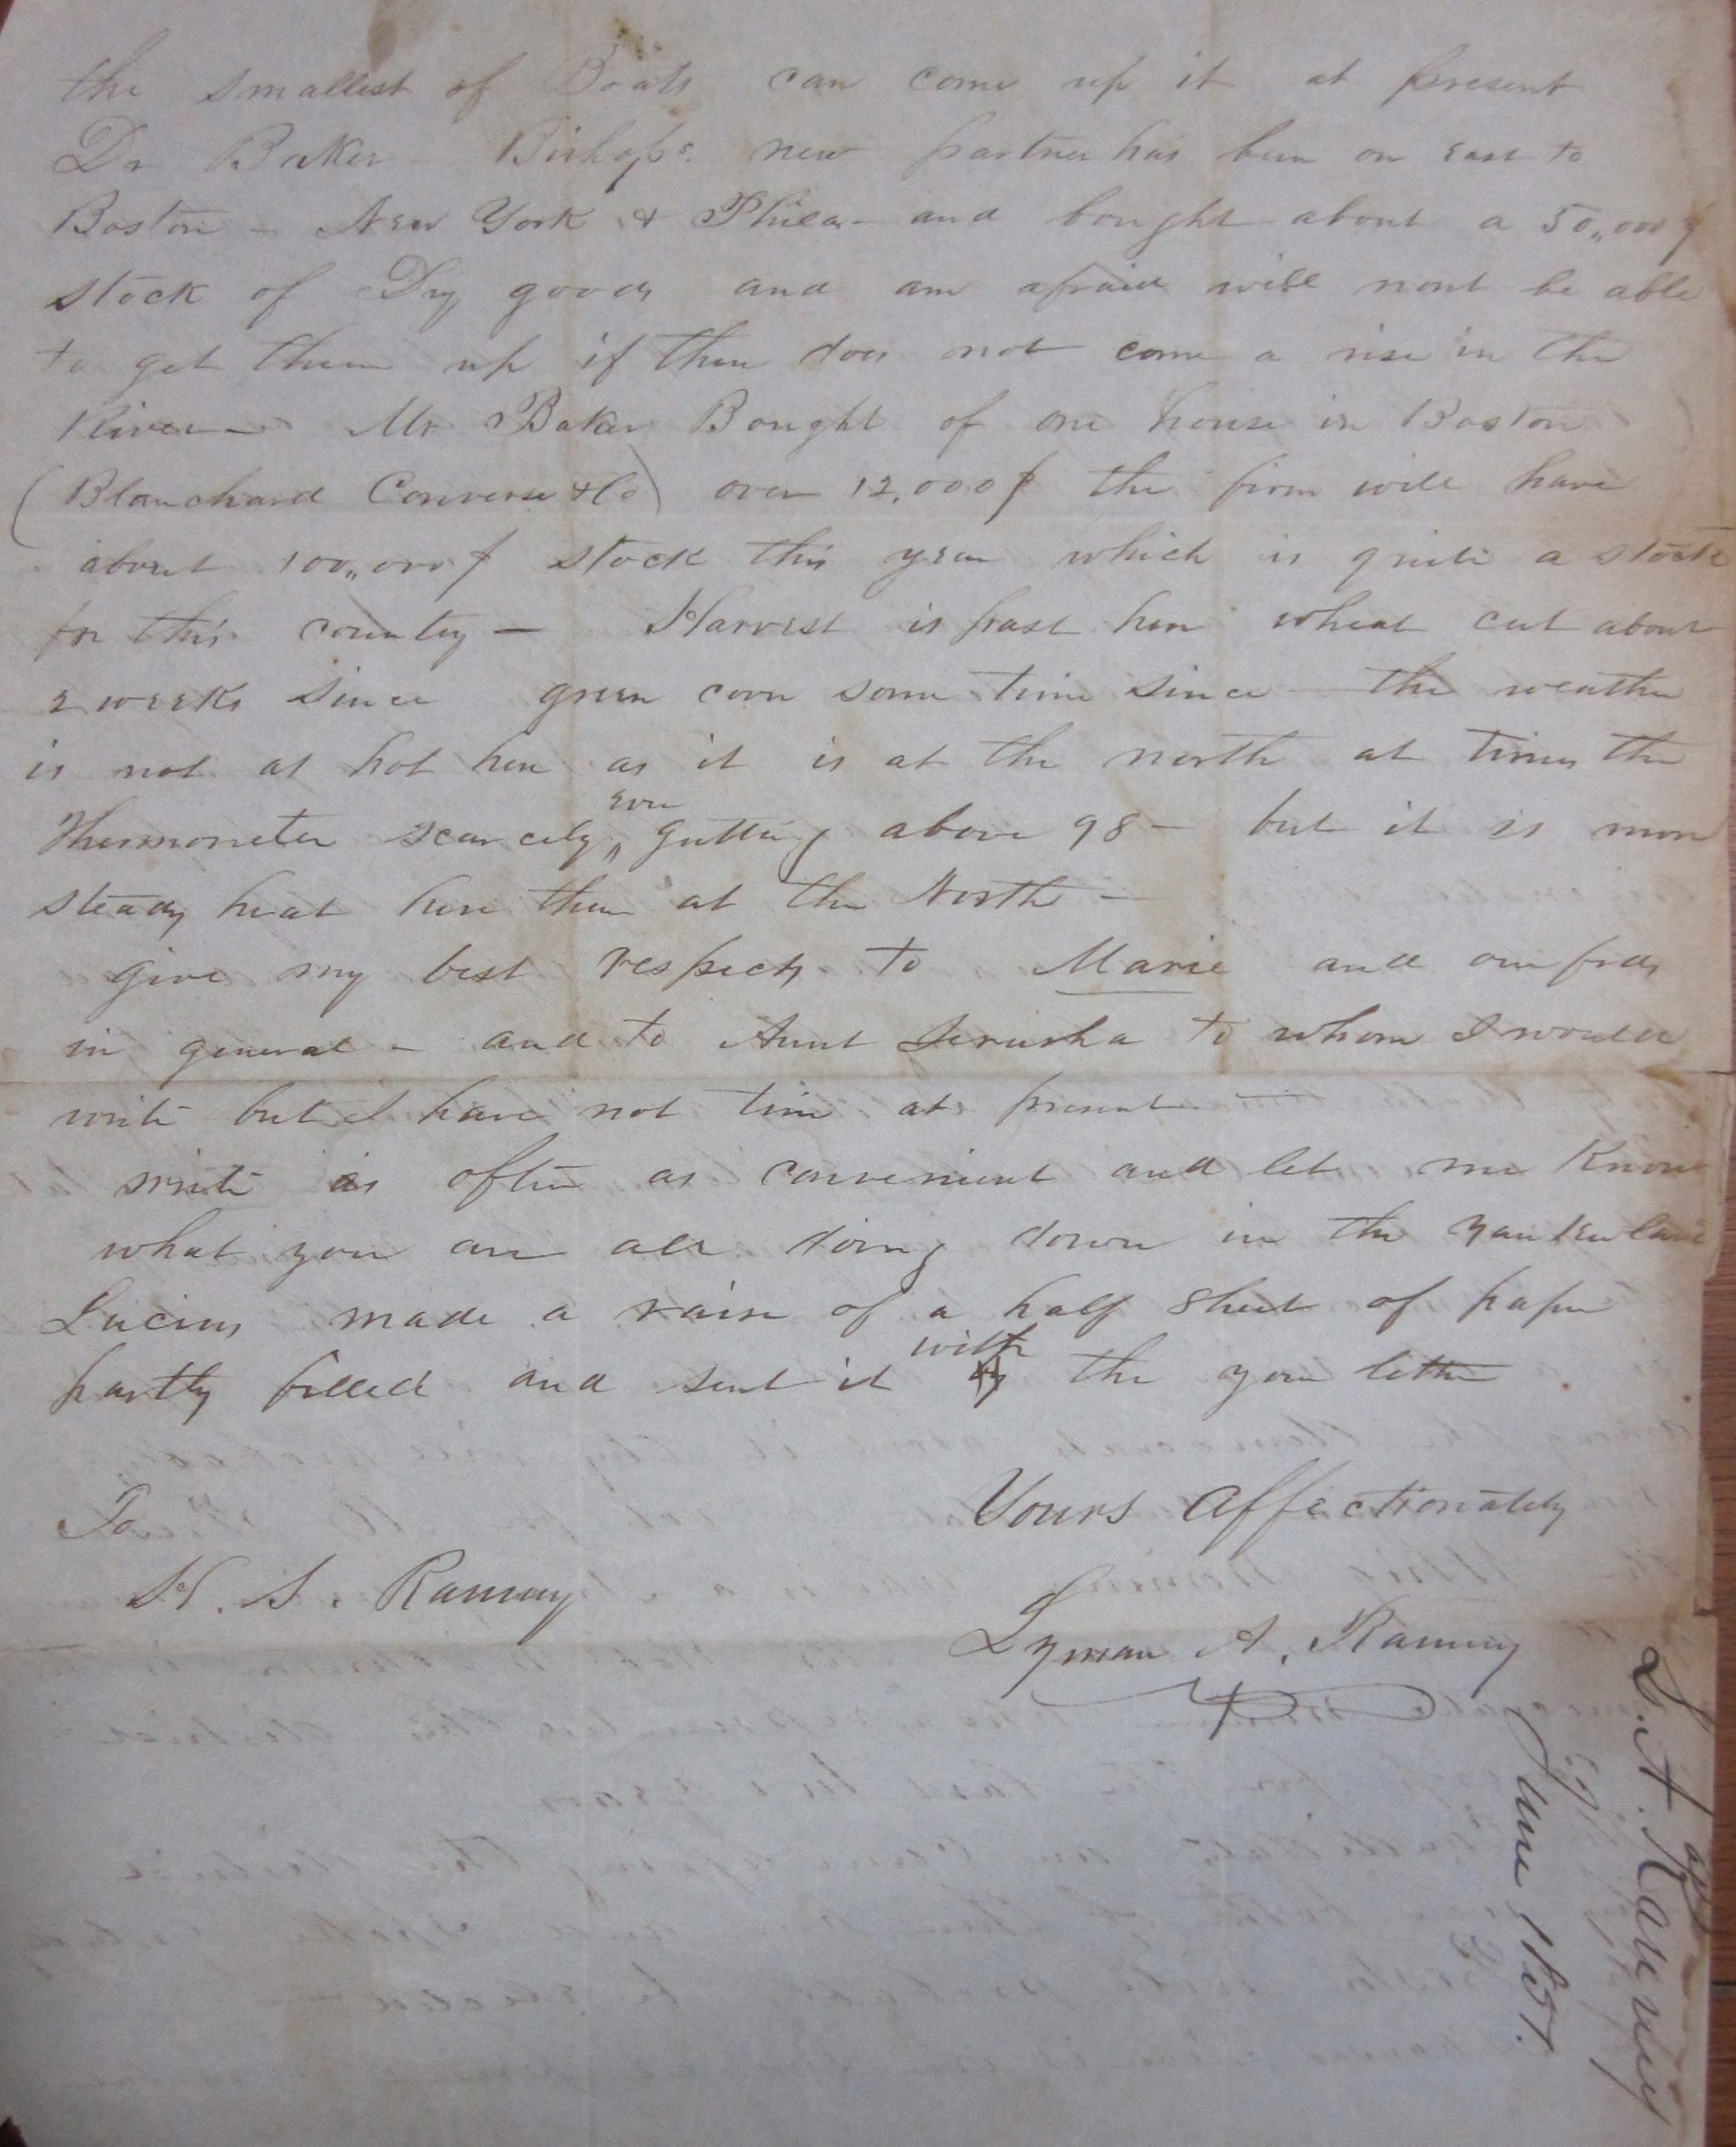 the smallest of Boats can come up it at present
Dr Baker Bishops new partner has been on east to
Boston - New York & Phila - and bought about a 50,,000 $
stock of Dry goods and am afraid will nont be able
to get them up if there does not come a rise in the
River - Mr Baker Bought of one house in Boston
(Blanchard Converse & Co) over 12,000 $ the firm will have
about 100,,000 $ stock this year which is quite a stock
for this country - Harvest is past here wheat cut about
2 weeks since green corn some time since - the weather
is not as hot here as it is at the north at times the
Thermometer scarcely ever getting above 98 - but it is more
steady heat here than at the North -
give my best respects to Marie and our frds
in general - and to Aunt Jerusha to whom I would
write but I have not time at present -
write as often as convenient and let me know
what you are all doing down in the Yankee land
Lucius made a raise of a half sheet of paper
partly filled and sent it with the your letter
Yours Affectionately
To
H. S. Ranney
Lyman A. Ranney
L. A. Ranney
June 1851.